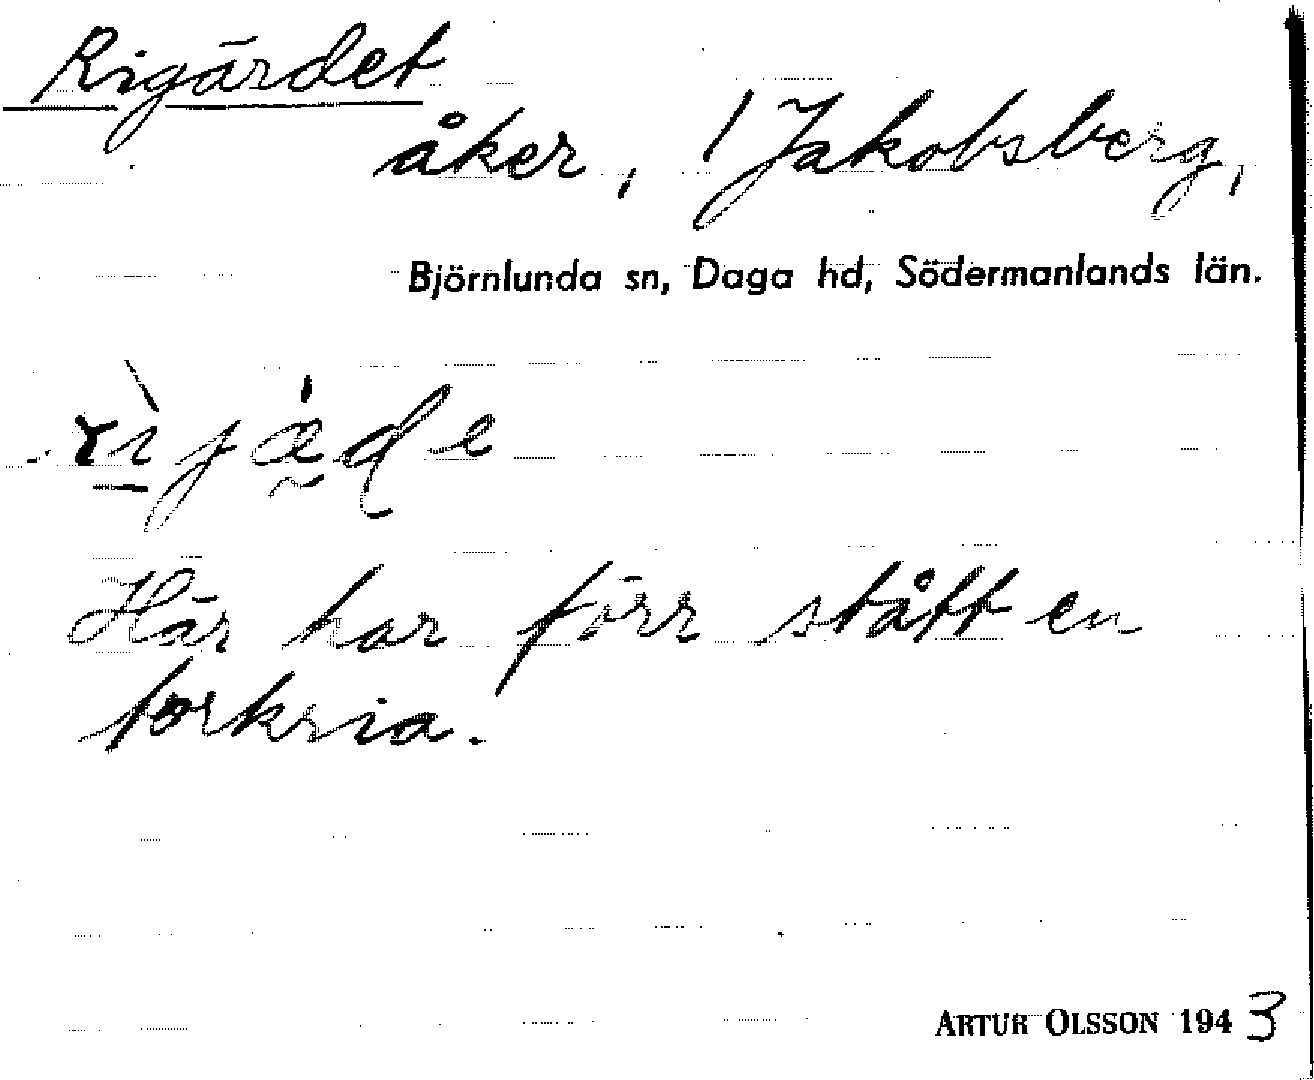 Rigärdet
åker, / Jakobsberg,
Björnlunda sn, Daga hd, Södermanlands län.
rìjǽde
Här har förr stått en
torkria.
ARTUR OLSSON 1943